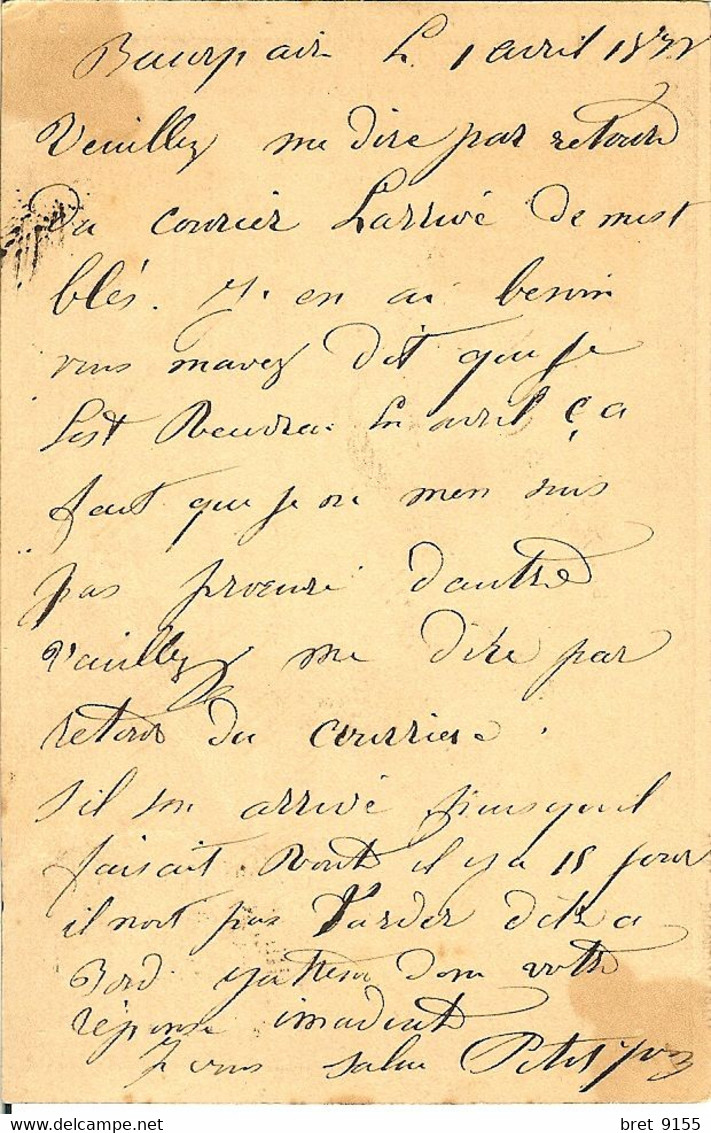 Le 1 avril 18
Veuillez me dire par retour
du courier Larrivé de mest
blés. J. en ai besoin
vous mavez Dit que je
Lest en avril ça
fait que je ne men suis
pas procuré dautre
Vauillez me dire par
retour du courriere.
sil son arrivé puisquil
faisait Route il y a 15 jour
il nort pas Tarder dètre a
Bord. gattend donc votre
réponse imadiate
J vous salue Petit
bret 9155